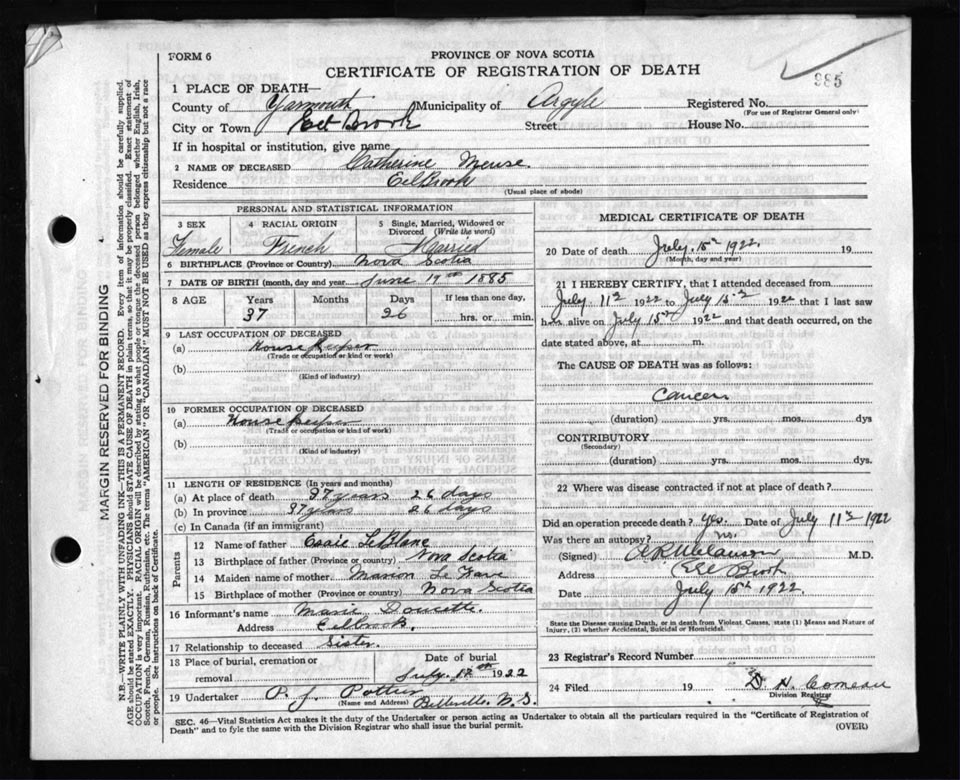 FORM 6
PROVINCE OF NOVA SCOTIA
CERTIFICATE OF REGISTRATION OF DEATH
985
1 PLACE OF DEATH—
County of Yarmouth Municipality of Argyle Registered No.
(For use of Registrar General only)
City or Town Eel Brook Street House No.
If in hospital or institution, give name
2 NAME OF DECEASED Catherine Meuse.
Residence Eel Brook
(Usual place of abode)
PERSONAL AND STATISTICAL INFORMATION
3 SEX 4 RACIAL ORIGIN 5 Single, Married, Widowed or Divorced (Write the word)
Female French Married
6 BIRTHPLACE (Province or Country) Nova Scotia
7 DATE OF BIRTH (month, day and year) June 19th 1885
8 AGE Years Months Days If less than one day,
37 26 hrs. or min.
9 LAST OCCUPATION OF DECEASED
(a) House keeper
(Trade or occupation or kind of work)
(b)
(Kind of industry)
10 FORMER OCCUPATION OF DECEASED
(a) House keeper
(Trade or occupation or kind of work)
(b)
(Kind of industry)
11 LENGTH OF RESIDENCE (In years and months)
(a) At place of death 37 years 26 days
(b) In province 37 years 26 days
(c) In Canada (if an immigrant)
Parents
12 Name of father LeBlanc
13 Birthplace of father (Province or country) Nova Scotia
14 Maiden name of mother Marion Le Fave
15 Birthplace of mother (Province or country) Nova Scotia
16 Informant's name Marie Doucette.
Address Eelbrook
17 Relationship to deceased Sister
18 Place of burial, cremation or removal
Date of burial
July 17th 1922
19 Undertaker P. J. Pottier Belleville N.S.
(Name and Address)
MEDICAL CERTIFICATE OF DEATH
20 Date of death July. 15th 1922. 19
(Month, day and year)
21 I HEREBY CERTIFY, that I attended deceased from
July. 11th 1922 to July 15th 1922 that I last saw
her alive on July 15th 1922 and that death occurred, on
date stated above, at m.
The CAUSE OF DEATH was as follows:
Cancer
(duration) yrs. mos. dys
CONTRIBUTORY
(Secondary)
(duration) yrs. mos. dys.
22 Where was disease contracted if not at place of death?
Did an operation precede death? Yes. Date of July 11th 1922
Was there an autopsy? No.
(Signed) M.D.
Address Eel Brook
Date July 15th 1922.
State the Disease causing Death, or in death from Violent Causes, state (1) Means and Nature of
Injury, (2) whether Accidental, Suicidal or Homicidal.
23 Registrar's Record Number
24 Filed 19 D H. Comeau
Division Registrar
SEC. 46—Vital Statistics Act makes it the duty of the Undertaker or person acting as Undertaker to obtain all the particulars required in the "Certificate of Registration of
Death" and to fyle the same with the Division Registrar who shall issue the burial permit.
(OVER)
MARGIN RESERVED FOR BINDING
N.B.—WRITE PLAINLY WITH UNFADING INK—THIS IS A PERMANENT RECORD. Every item of information should be carefully supplied.
AGE should be stated EXACTLY. PHYSICIANS should STATE CAUSE OF DEATH in plain terms, so that it may be properly classified. Exact statement of
OCCUPATION is very important. RACIAL ORIGIN will be described by stating to what people or tongue the deceased person belonged whether English, Irish,
Scotch, French, German, Russian, Ruthenian, etc. The terms "AMERICAN" OR "CANADIAN" MUST NOT BE USED as they express citizenship but not a race
or people. See instructions on back of Certificate.